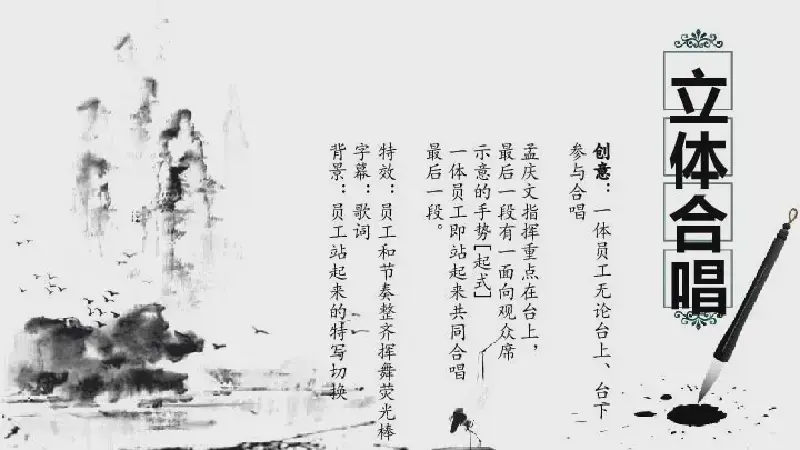 立体合唱
创意：一体员工无论台上、台下
参与合唱
孟庆文指挥重点在台上，
最后一段有一面向观众席
示意的手势[起式]
一体员工即站起来共同合唱
最后一段。
特效：员工和节奏整齐挥舞荧光棒
字幕：歌词
背景：员工站起来的特写切换